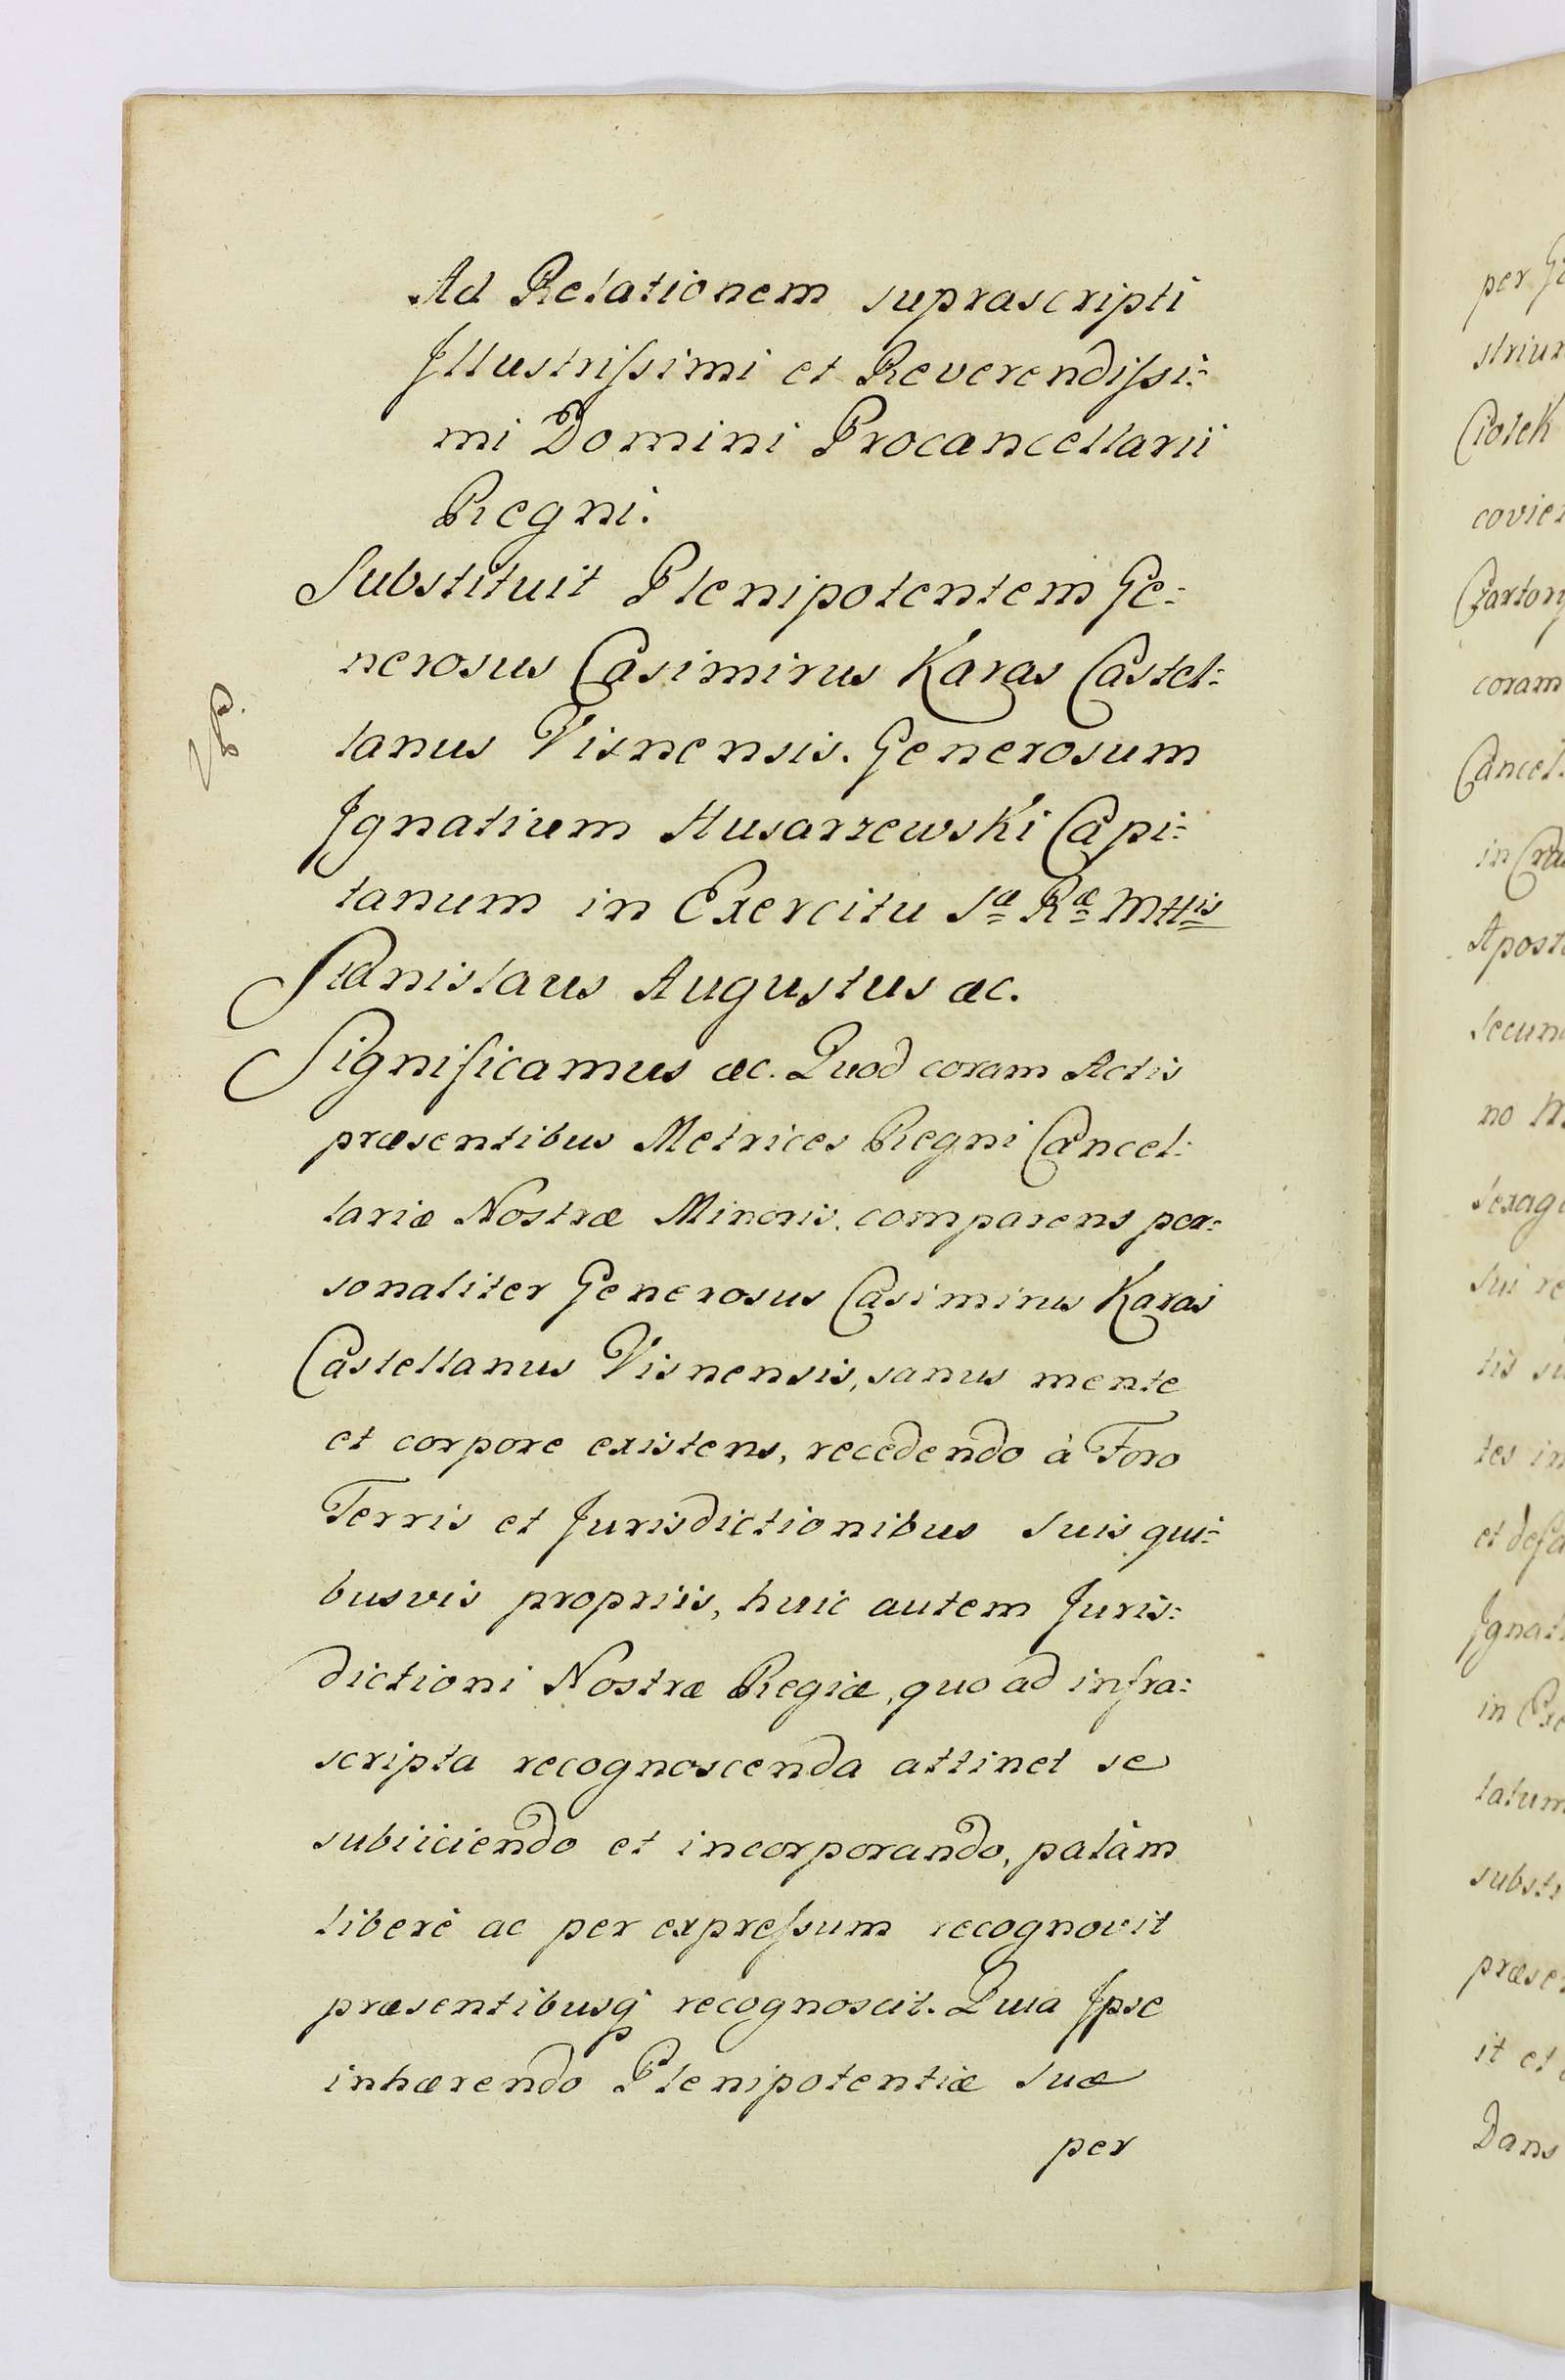 Ad Relationem suprascripti
Jllustriſsimi et Reverendiſsi:
mi Domini Procancellarii
Regni.
Substituit Plenipotentem Ge:
nerosus Casimirus Karas Castel:
lanus Visnensis. Generosum
Jgnatium Husarzewski Capi:
tanum in Exercitu Sæ Ræ Mttis
Stanislaus Augustus &c.
Significamus &c. Quod coram Actis
præsentibus Metrices Regni Cancel:
lariæ Nostræ Minoris, comparens per:
sonaliter Generosus Casimirus Karas
Castellanus Visnensis, sanus mente
et corpore existens, recedendo à Foro
Terris et Jurisdictionibus suis qui:
busvis propriis, huic autem Juris:
dictioni Nostræ Regiæ, quo ad infra:
scripta recognoscenda attinet se
subiiciendo et incorporando, palàm
liberè ac per expreſsum recognovit
præsentibusq; recognoscit. Quia Jpse
inhærendo Plenipotentiæ suæ
per
per
striu
Ciolek
covie
Czartory
coram
Cancel
in Cra
Apost
secun
no M
sexag
sui re
tis su
tes in
et defa
Jgnat
in Exe
latum
subst
præse
it et
Dans